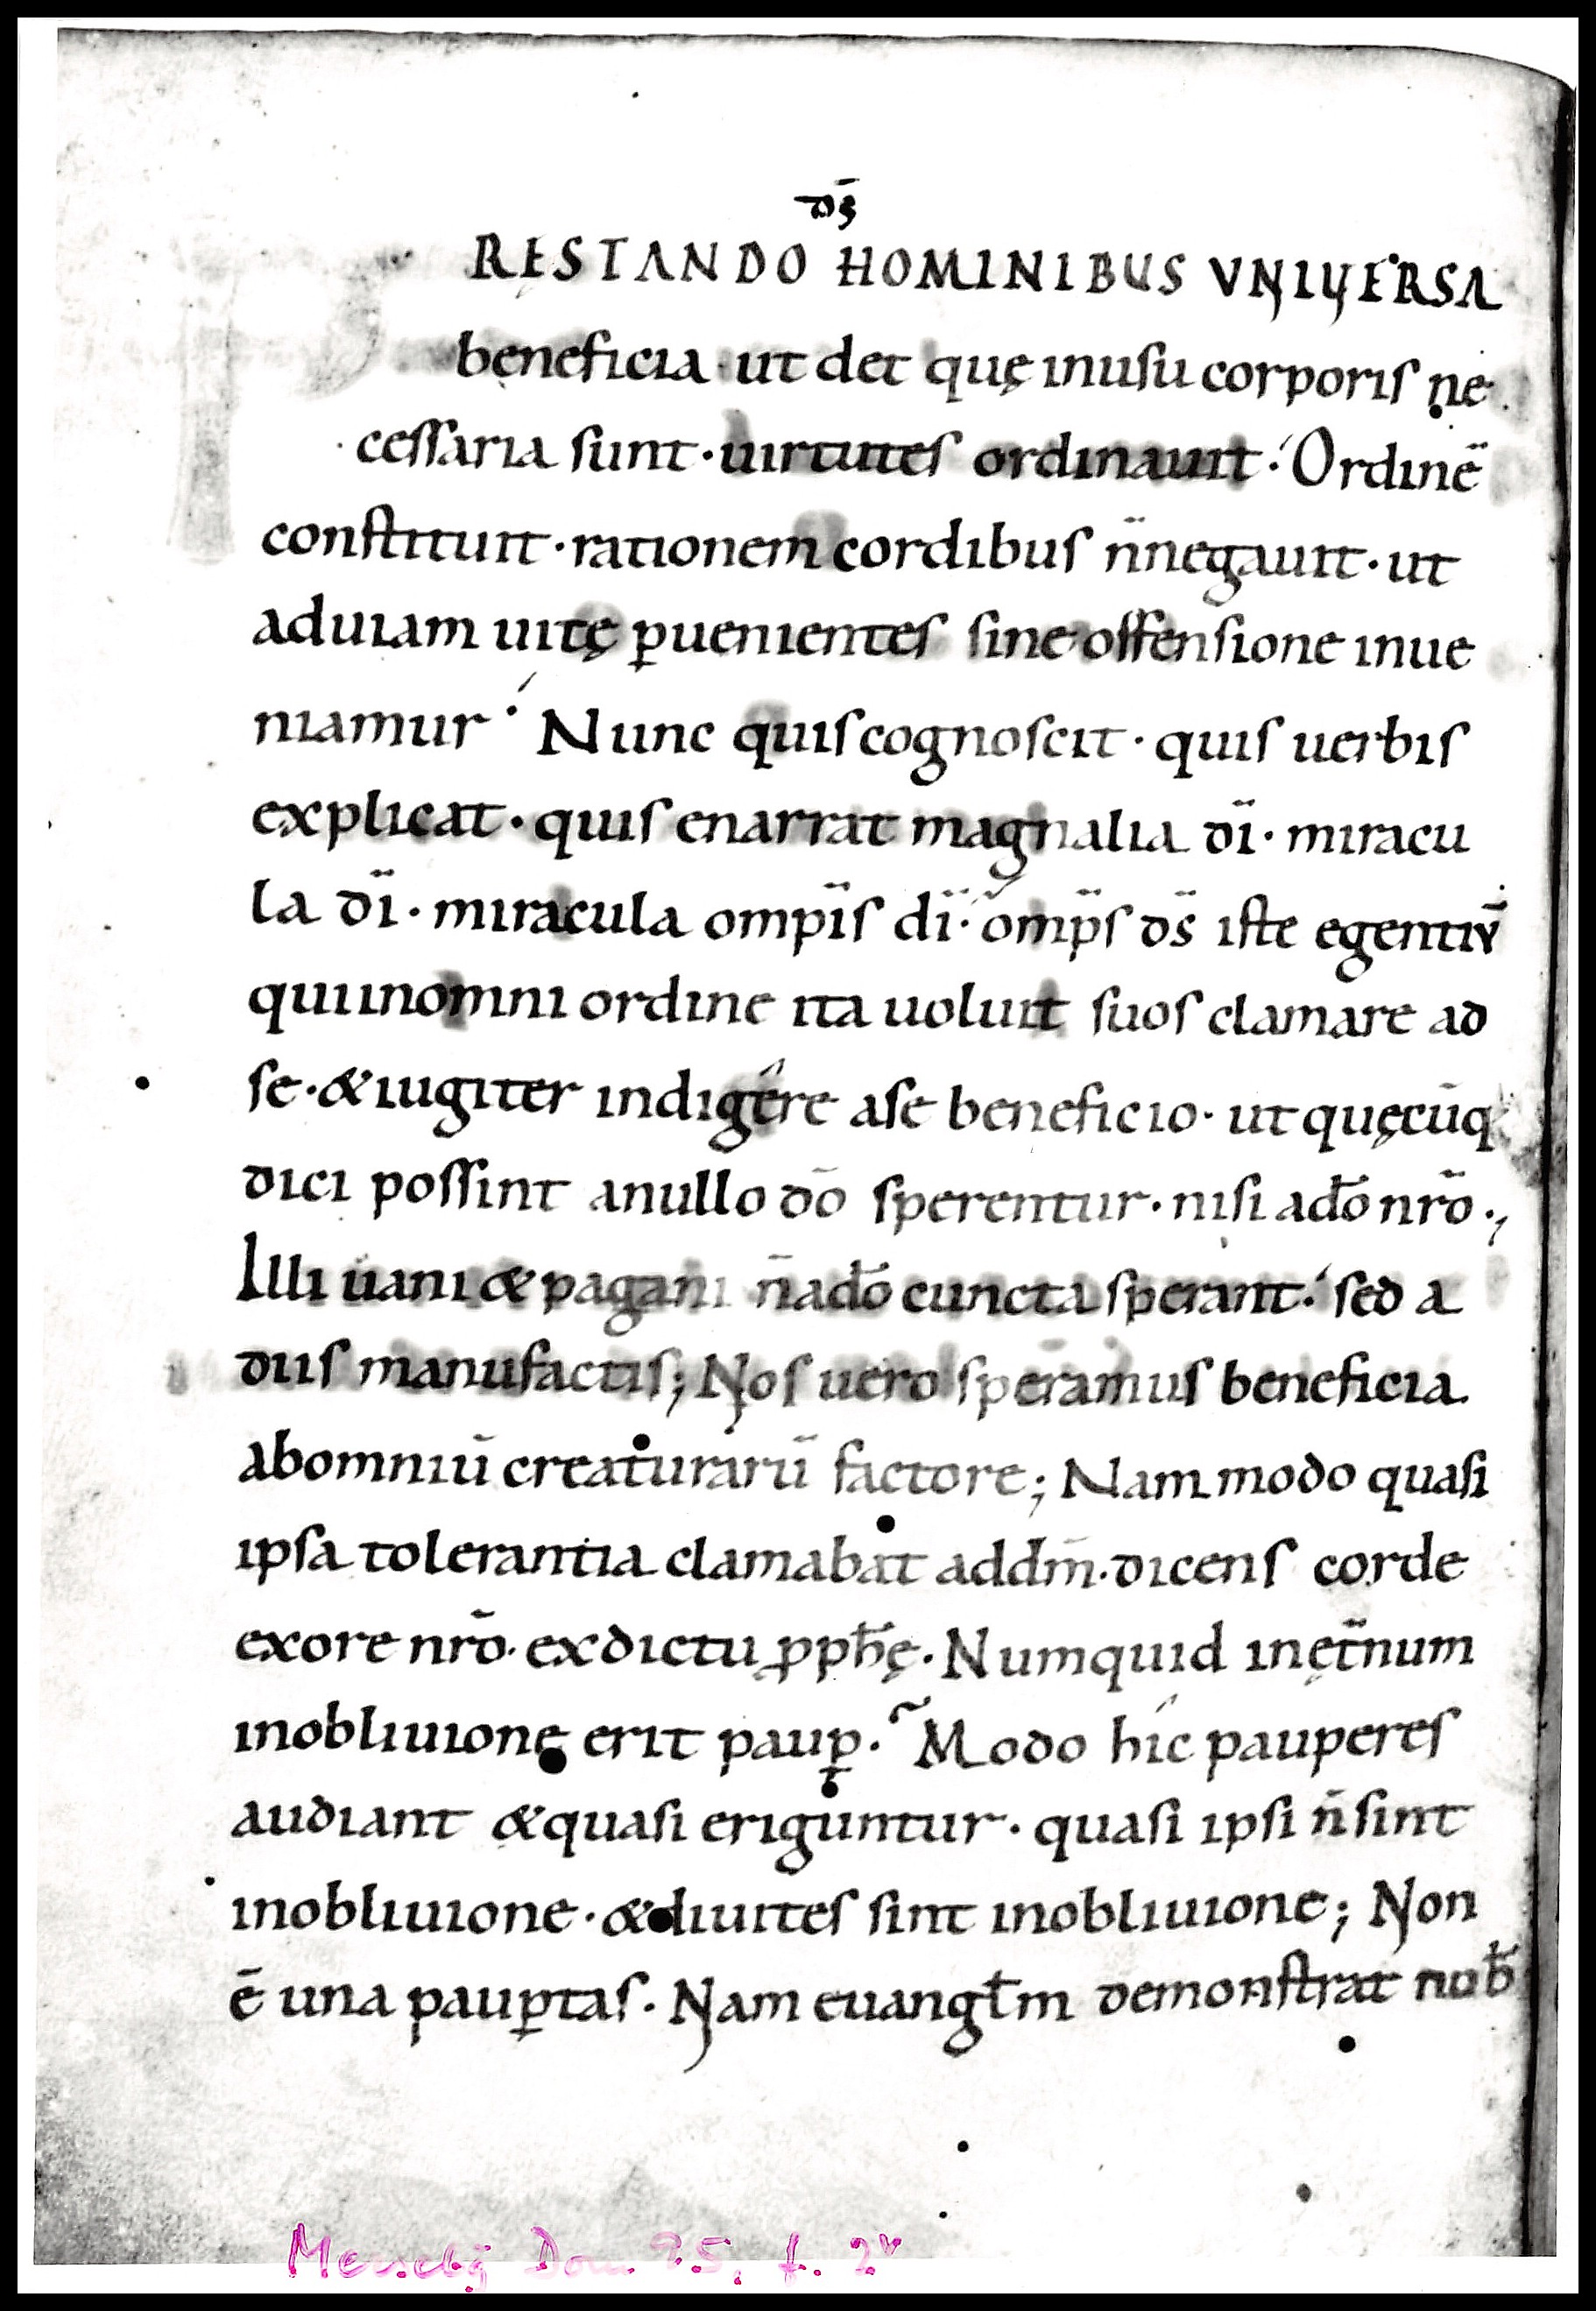 d̄s
PRESTANDO HOMINIBUS VNIVERSA
beneficia · ut det quę inusu corporis ne
cessaria sunt · uirtutes ordinauit · Ordinē
constituit · rationem cordibus n̄negauit · ut
aduiam uitę ꝑuenientes sine offensione inue
niamur · Nunc quis cognoscit · quis uerbis
explicat · quis enarrat magnalia dī · miracu
la dī · miracula omp̄is dī · omp̄s ds̄ iste egentiū
quiinomni ordine ita uoluit suos clamare ad
se · &iugiter indigére ase beneficio · ut quęcūq;
dici possint anullo dō sperentur · nisi adō nrō ·,
Illi uani & pagani n̄adō cuncta sperant · sed a
diis manufactis; Nos uero speramus beneficia
abomniū creaturarū factore; Nam modo quasi
ipsa tolerantia clamabat addm̄ · dicens corde
exore nrō · exdictu ꝓph̄ę · Numquid inęt̄num
inobliuione erit pauꝑ · Modo híc pauperes
audiant &quasi eriguntur · quasi ipsi n̄sint
inobliuione · &diuites sint inobliuione; Non
ē una pauꝑtas · Nam euangl̄m demonstrat nob̄
Mersebg Dom 95, f. 2v